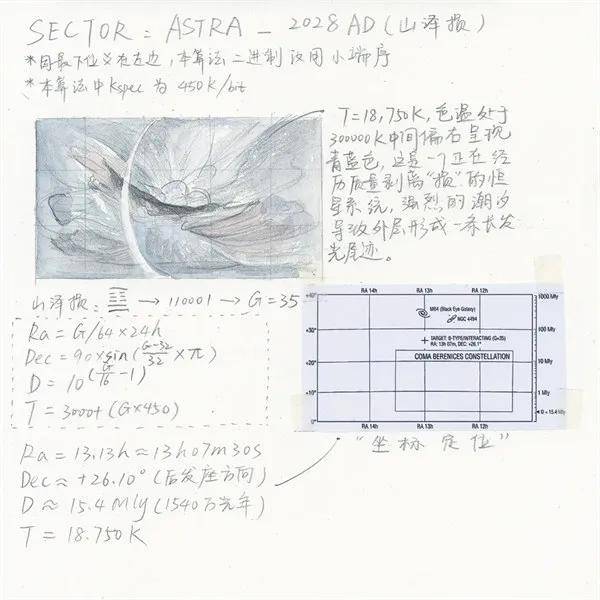 SECTOR: ASTRA - 2028 AD (山泽损)
*因最下位爻在左边,本算法二进制改用小端序
*本算法中Kspec为450K/bit
T=18,750K,色温处于
300000K中间偏右呈现
青蓝色,这是一个正在经
历质量剥离"损"的恒
星系统,强烈的潮汐
导致外层形成一条长发
光尾迹。
山泽损: → 110001 → G=35
Ra = G/64×24h
Dec = 90×sin(G-32/32×π)
D = 10^(G/16-1)
T = 3000+(G×450)
RA 14h RA 13h RA 12h
+40° 1000 Mly
M64 (Black Eye Galaxy)
NGC 4494
+30° 100 Mly
TARGET: B-TYPE/INTERACTING (G=35)
RA: 13h 07m, DEC: +26.1°
COMA BERENICES CONSTELLATION
+20° 10 Mly
+10° 1 Mly
D = 15.4 Mly
0°
RA 14h RA 13h RA 12h
"坐标定位"
Ra = 13.13h ≈ 13h07m30s
Dec ≈ +26.10° (后发座方向)
D ≈ 15.4 Mly (1540万光年)
T = 18.750K